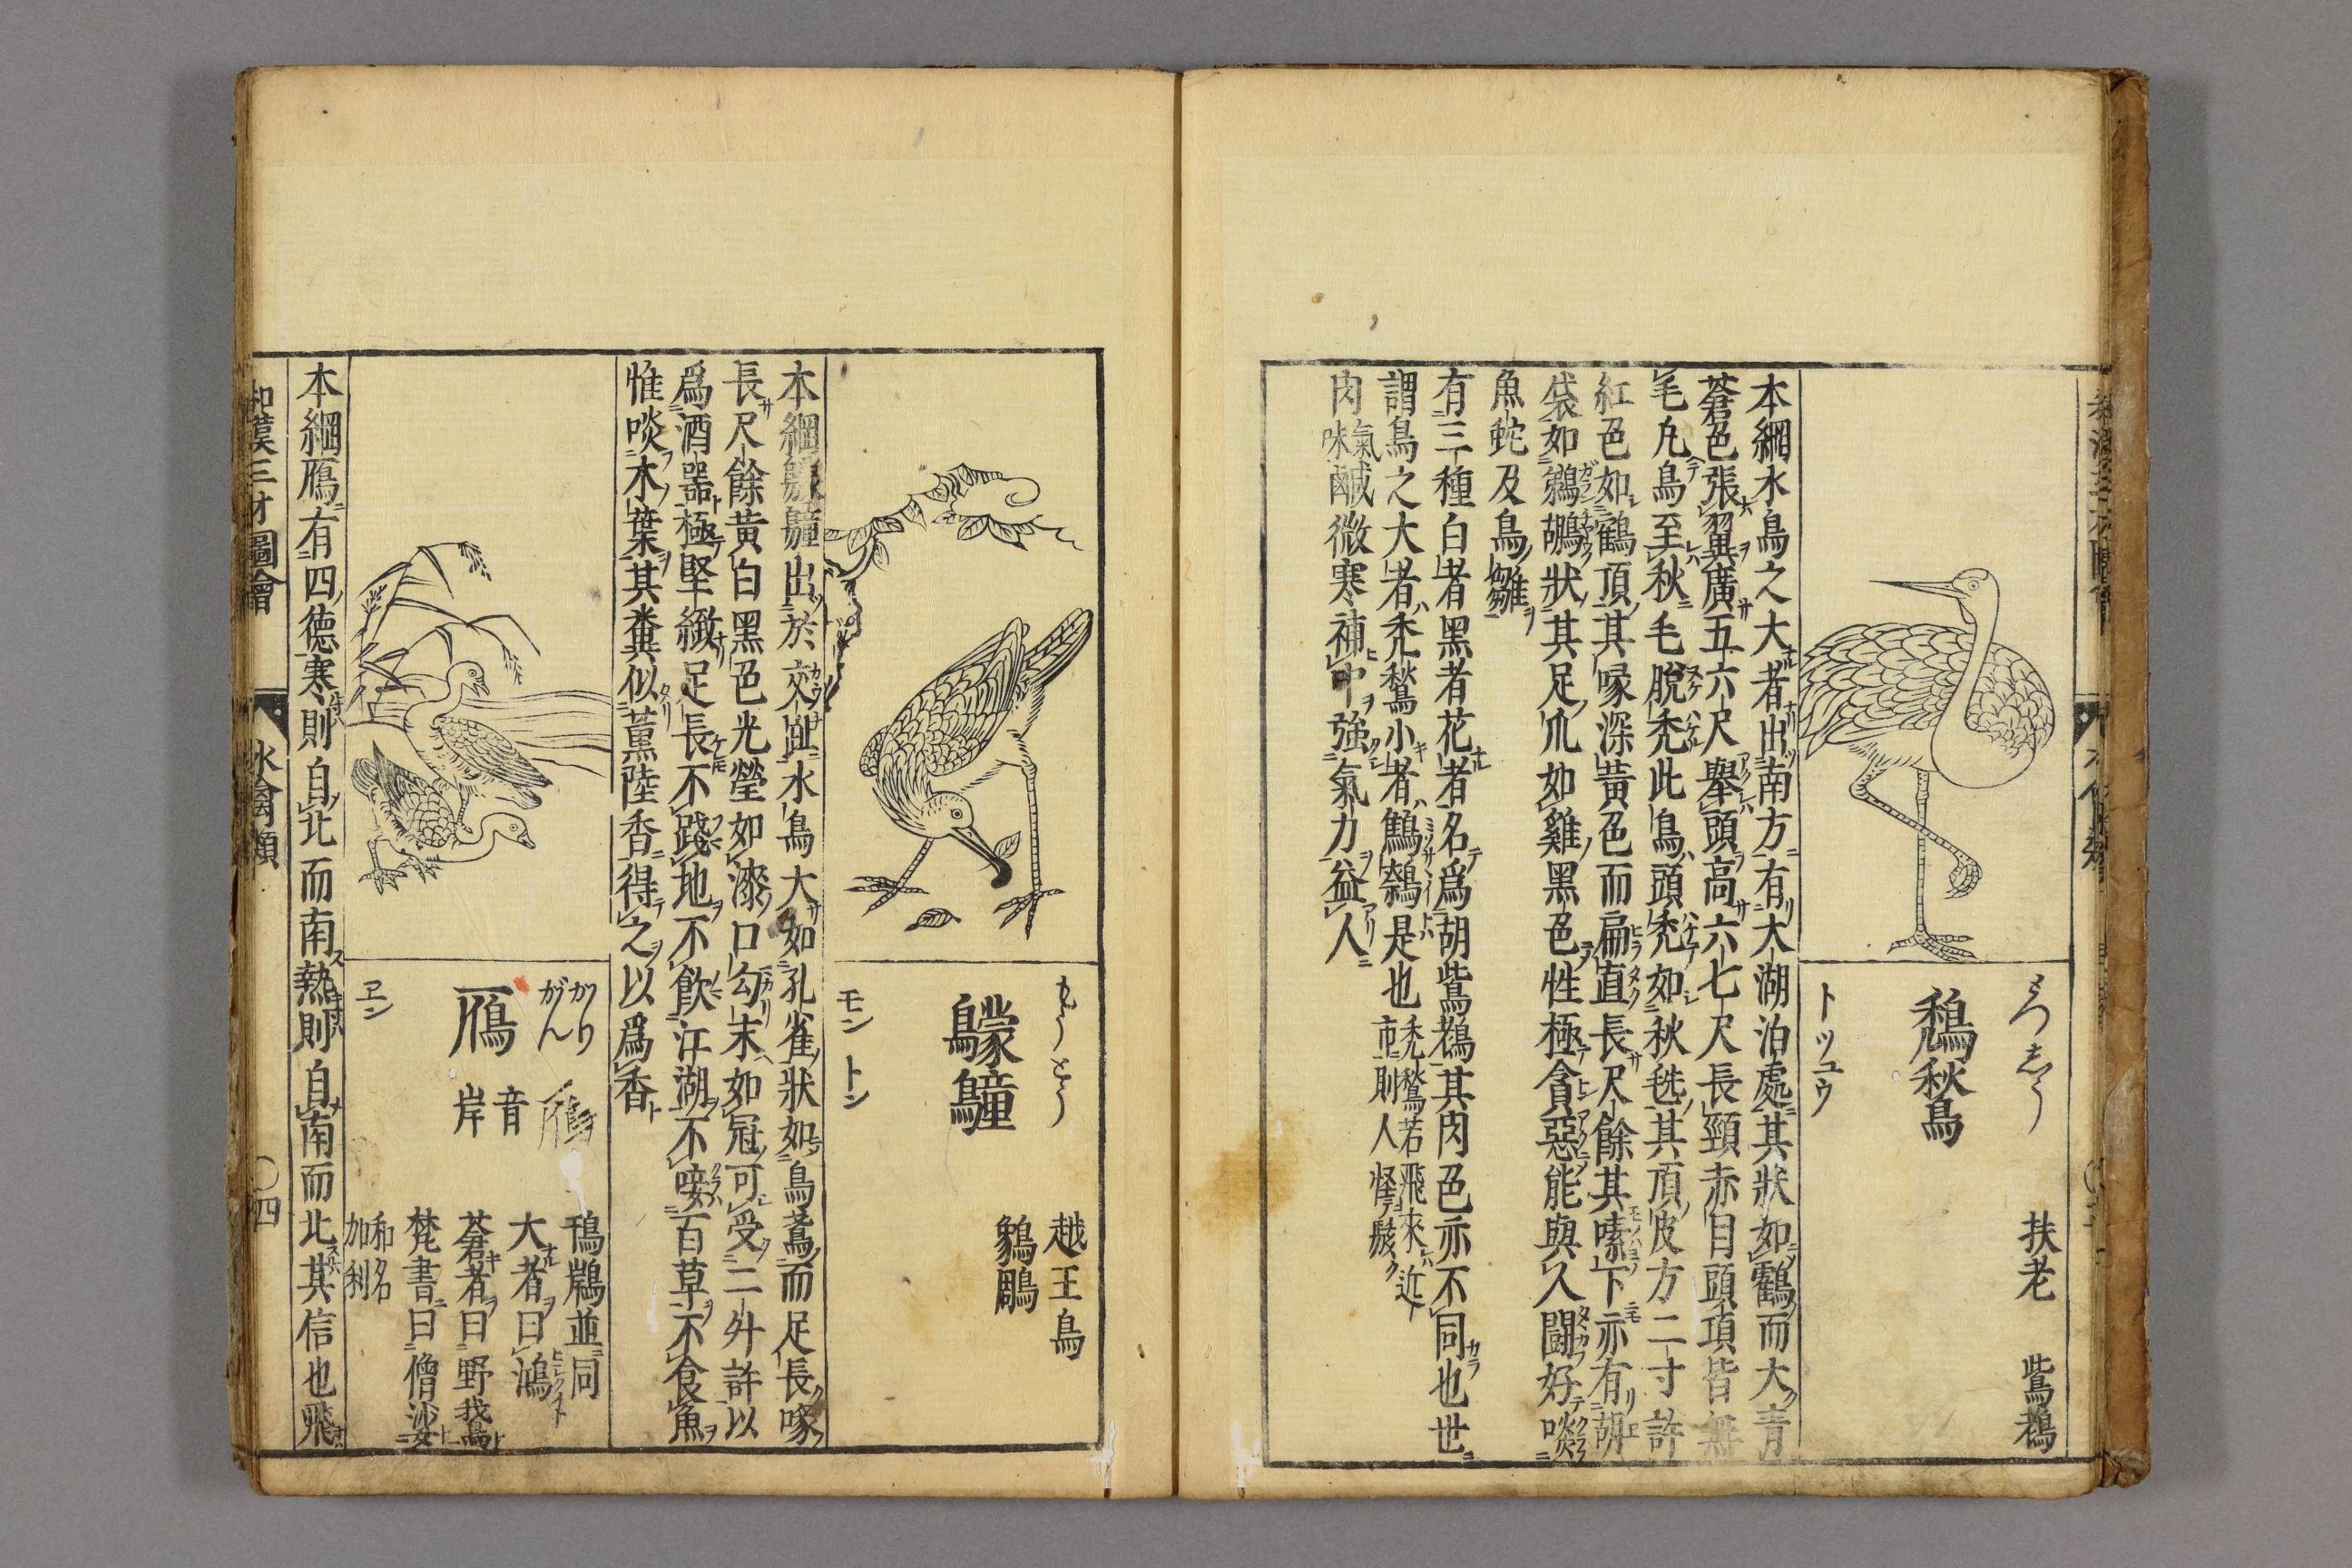 扶老
鵹鶬
とつしう
鵚鶖
トツユウ
本綱水鳥之大者出南方有大湖泊處其狀如鶴而大青
蒼色張翼廣五六尺舉頭高六七尺長頸赤目頭項皆無
毛凡鳥至秋毛脫禿此鳥頭禿如秋毨其頂皮方二寸許
紅色如鶴頂其喙深黃色而扁直長尺餘其嗉下亦有胡
袋如鵜鶘狀其足爪如雞黑色性極貪惡能與人鬪好啖
魚蛇及鳥雛
有三種白者黑者花者名爲胡鵹鶬其肉色亦不同也世
謂鳥之大者禿鶖小者鷦鷯是也
禿鶖若飛來近
市則人怪駭
肉
氣
味
鹹微寒補中強氣力益人
越王鳥
鶴䳟
もうとう
䴌鸏
モントン
本綱䴌鸏出於交趾水鳥大如孔雀狀如烏鳶而足長喙
長尺餘黃白黑色光瑩如漆口勾末如冠可受二升許以
爲酒器極堅緻足長不踐地不飲江湖不唼百草不食魚
惟啖木葉其糞似薰陸香得之以爲香
かり
がん
鴈
雁
音
岸
ヱン
鳱鴘並同
大者曰鴻
蒼者曰野鵞
梵書曰僧娑
和名
加利
本綱鴈有四德寒則自北而南熱則自南而北其信也飛
和漢三才圖會
水禽類
〇四